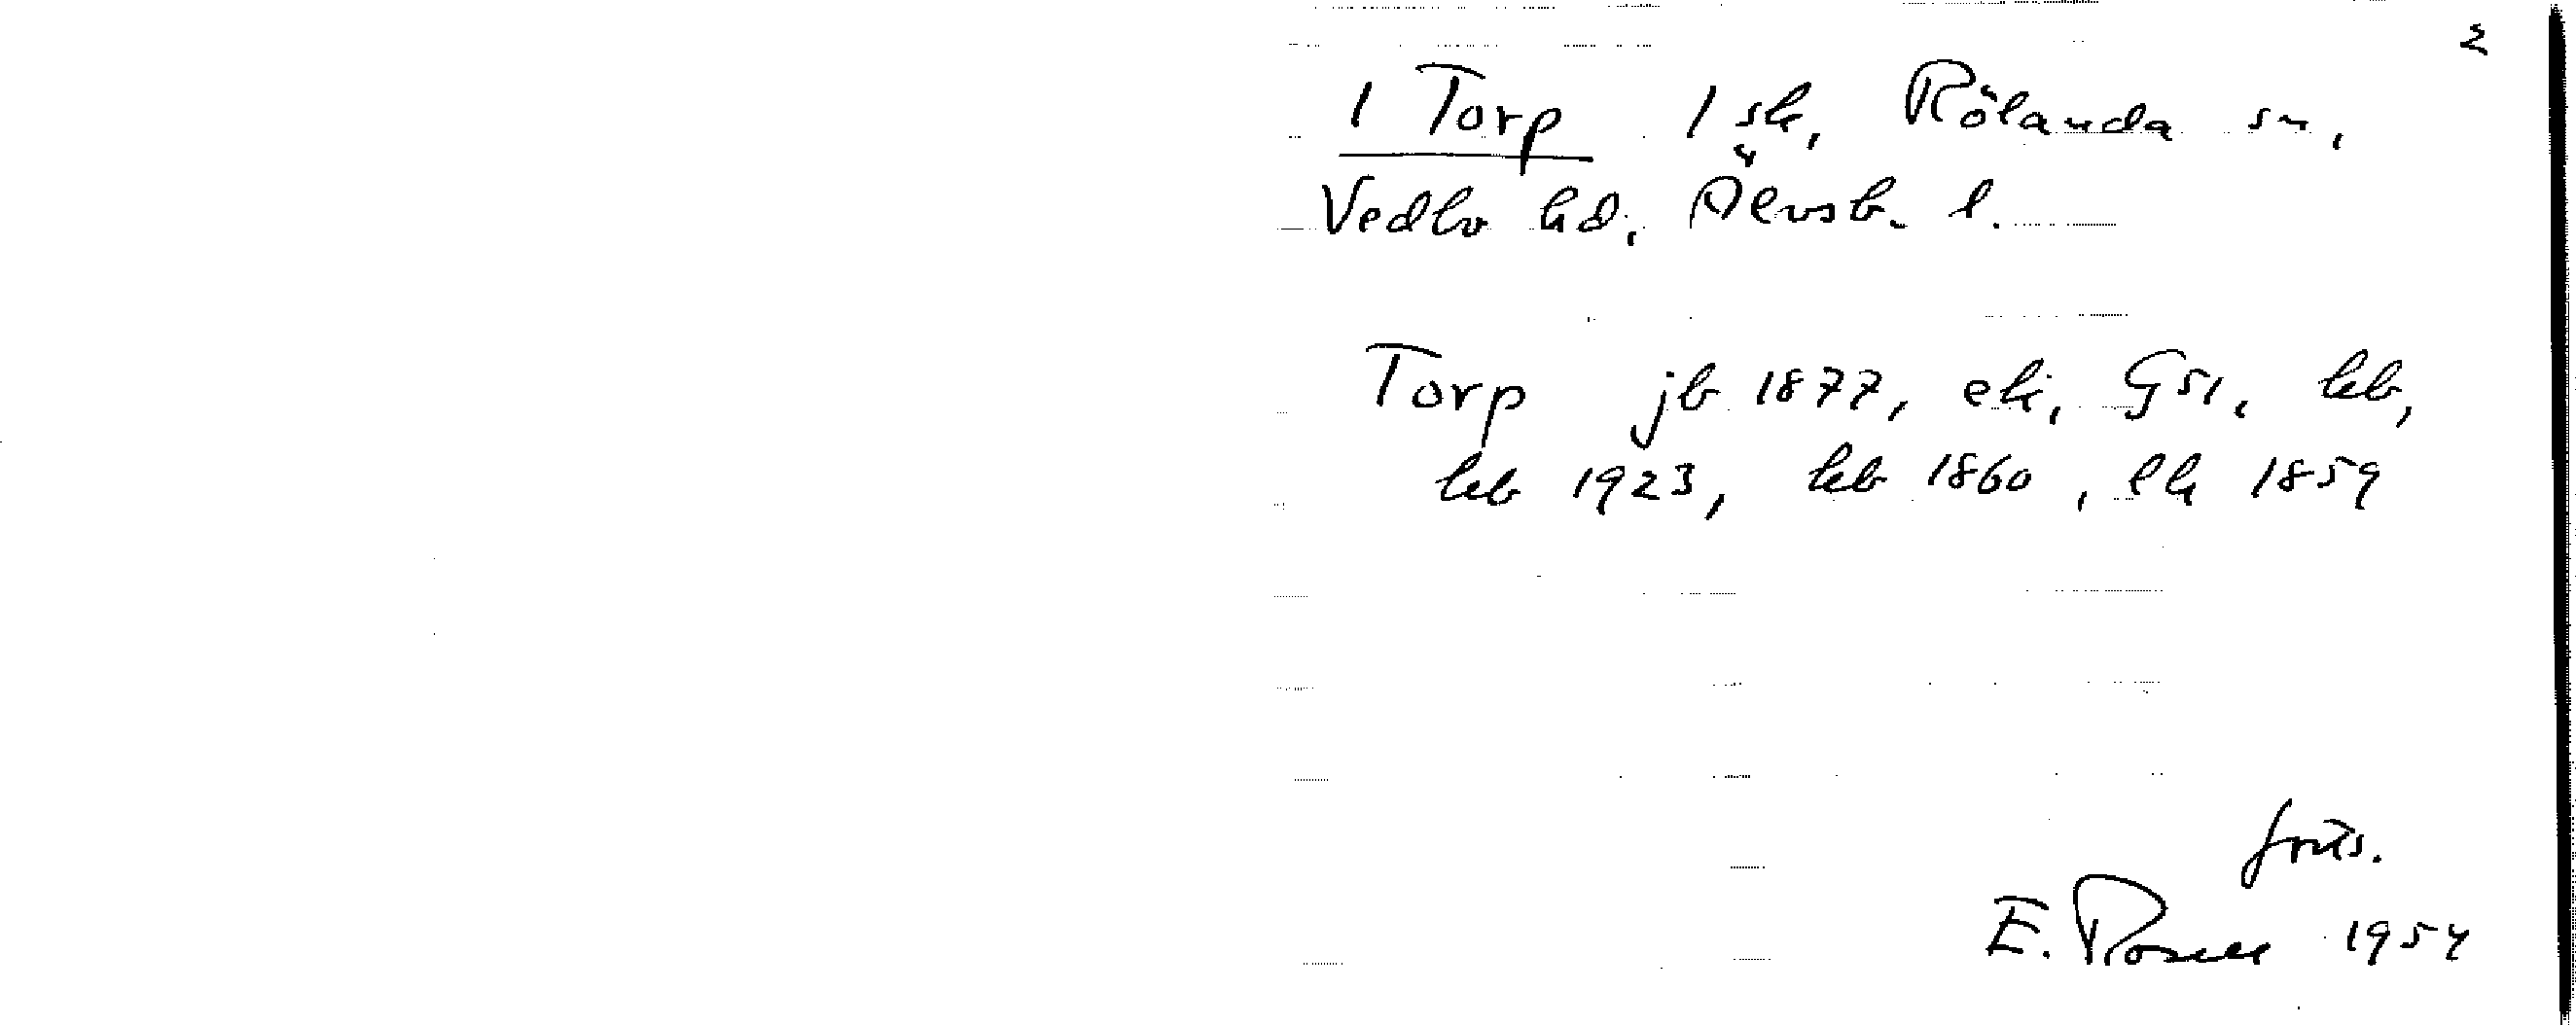 2
1 Torp 1 sk, Rölanda sn,
Vedbo hd, Älvsb. l.
Torp jb 1877, ek, G51, kb,
kb 1923, kb 1860, lk 1859
forts.
E. Rosell 1954